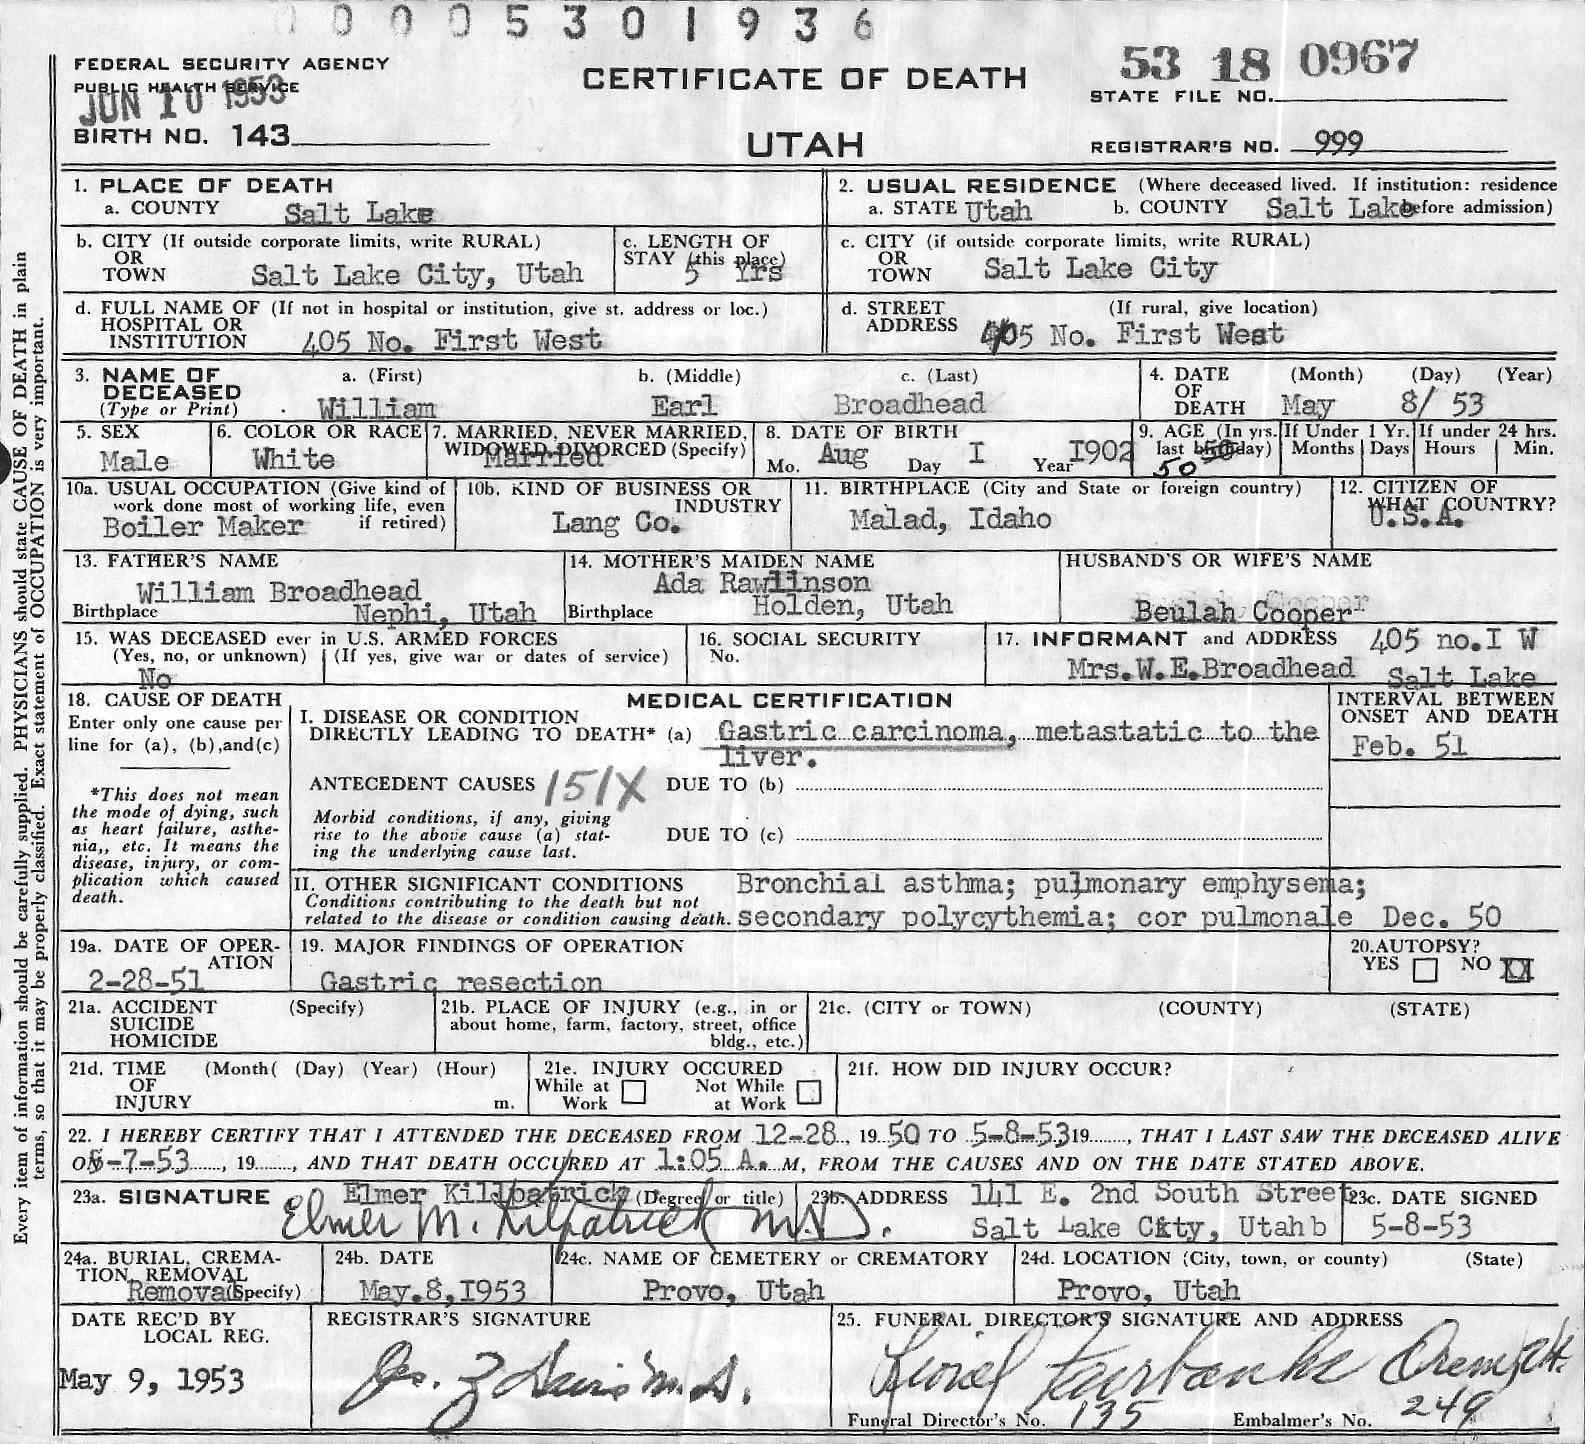 0 0 0 0 5 3 0 1 9 3 6
FEDERAL SECURITY AGENCY
PUBLIC HEALTH SERVICE
JUN 10 1953
BIRTH NO. 143
CERTIFICATE OF DEATH
UTAH
53 18 0967
STATE FILE NO.
REGISTRAR'S NO. 999
1. PLACE OF DEATH
a. COUNTY Salt Lake
2. USUAL RESIDENCE (Where deceased lived. If institution: residence before admission)
a. STATE Utah b. COUNTY Salt Lake
b. CITY (If outside corporate limits, write RURAL)
OR
TOWN Salt Lake City, Utah
c. LENGTH OF
STAY (this place)
5 Yrs
c. CITY (if outside corporate limits, write RURAL)
OR
TOWN Salt Lake City
d. FULL NAME OF (If not in hospital or institution, give st. address or loc.)
HOSPITAL OR
INSTITUTION 405 No. First West
d. STREET (If rural, give location)
ADDRESS 405 No. First West
3. NAME OF a. (First) b. (Middle) c. (Last)
DECEASED
(Type or Print) William Earl Broadhead
4. DATE (Month) (Day) (Year)
OF
DEATH May 8/ 53
5. SEX
Male
6. COLOR OR RACE
White
7. MARRIED, NEVER MARRIED,
WIDOWED, DIVORCED (Specify)
Married
8. DATE OF BIRTH
Mo. Aug Day I Year I902
9. AGE (In yrs. last birthday)
50
If Under 1 Yr.
Months Days
If under 24 hrs.
Hours Min.
10a. USUAL OCCUPATION (Give kind of
work done most of working life, even
if retired)
Boiler Maker
10b. KIND OF BUSINESS OR
INDUSTRY
Lang Co.
11. BIRTHPLACE (City and State or foreign country)
Malad, Idaho
12. CITIZEN OF
WHAT COUNTRY?
U.S.A.
13. FATHER'S NAME
William Broadhead
Birthplace Nephi, Utah
14. MOTHER'S MAIDEN NAME
Ada Rawlinson
Birthplace Holden, Utah
HUSBAND'S OR WIFE'S NAME
Beulah Cooper
15. WAS DECEASED ever in U.S. ARMED FORCES
(Yes, no, or unknown) (If yes, give war or dates of service)
No
16. SOCIAL SECURITY
No.
17. INFORMANT and ADDRESS 405 no.I W
Mrs.W.E.Broadhead Salt Lake
18. CAUSE OF DEATH
Enter only one cause per
line for (a), (b),and(c)
*This does not mean
the mode of dying, such
as heart failure, asthe-
nia,, etc. It means the
disease, injury, or com-
plication which caused
death.
MEDICAL CERTIFICATION
I. DISEASE OR CONDITION
DIRECTLY LEADING TO DEATH* (a) Gastric carcinoma, metastatic to the
liver.
INTERVAL BETWEEN
ONSET AND DEATH
Feb. 51
ANTECEDENT CAUSES 151X DUE TO (b)
Morbid conditions, if any, giving
rise to the above cause (a) stat-
ing the underlying cause last.
DUE TO (c)
II. OTHER SIGNIFICANT CONDITIONS
Conditions contributing to the death but not
related to the disease or condition causing death.
Bronchial asthma; pulmonary emphysema;
secondary polycythemia; cor pulmonale Dec. 50
19a. DATE OF OPER-
ATION
2-28-51
19. MAJOR FINDINGS OF OPERATION
Gastric resection
20.AUTOPSY?
YES NO XX
21a. ACCIDENT (Specify)
SUICIDE
HOMICIDE
21b. PLACE OF INJURY (e.g., in or
about home, farm, factory, street, office
bldg., etc.)
21c. (CITY or TOWN) (COUNTY) (STATE)
21d. TIME (Month( (Day) (Year) (Hour)
OF
INJURY m.
21e. INJURY OCCURED
While at Work
Not While at Work
21f. HOW DID INJURY OCCUR?
22. I HEREBY CERTIFY THAT I ATTENDED THE DECEASED FROM 12-28, 19 50 TO 5-8-53 19......, THAT I LAST SAW THE DECEASED ALIVE
ON 5-7-53......, 19......, AND THAT DEATH OCCURED AT 1:05 A. M, FROM THE CAUSES AND ON THE DATE STATED ABOVE.
23a. SIGNATURE Elmer Killpatrick (Degree or title)
Elmer M. Kilpatrick M.D.
23b. ADDRESS 141 E. 2nd South Street
Salt Lake City, Utah b
23c. DATE SIGNED
5-8-53
24a. BURIAL, CREMA-
TION, REMOVAL
(Specify) Removal
24b. DATE
May.8,I953
24c. NAME OF CEMETERY or CREMATORY
Provo, Utah
24d. LOCATION (City, town, or county) (State)
Provo, Utah
DATE REC'D BY
LOCAL REG.
May 9, 1953
REGISTRAR'S SIGNATURE
25. FUNERAL DIRECTOR'S SIGNATURE AND ADDRESS
Fairbanks
Funeral Director's No. 135 Embalmer's No. 249
Every item of information should be carefully supplied. PHYSICIANS should state CAUSE OF DEATH in plain
terms, so that it may be properly classified. Exact statement of OCCUPATION is very important.